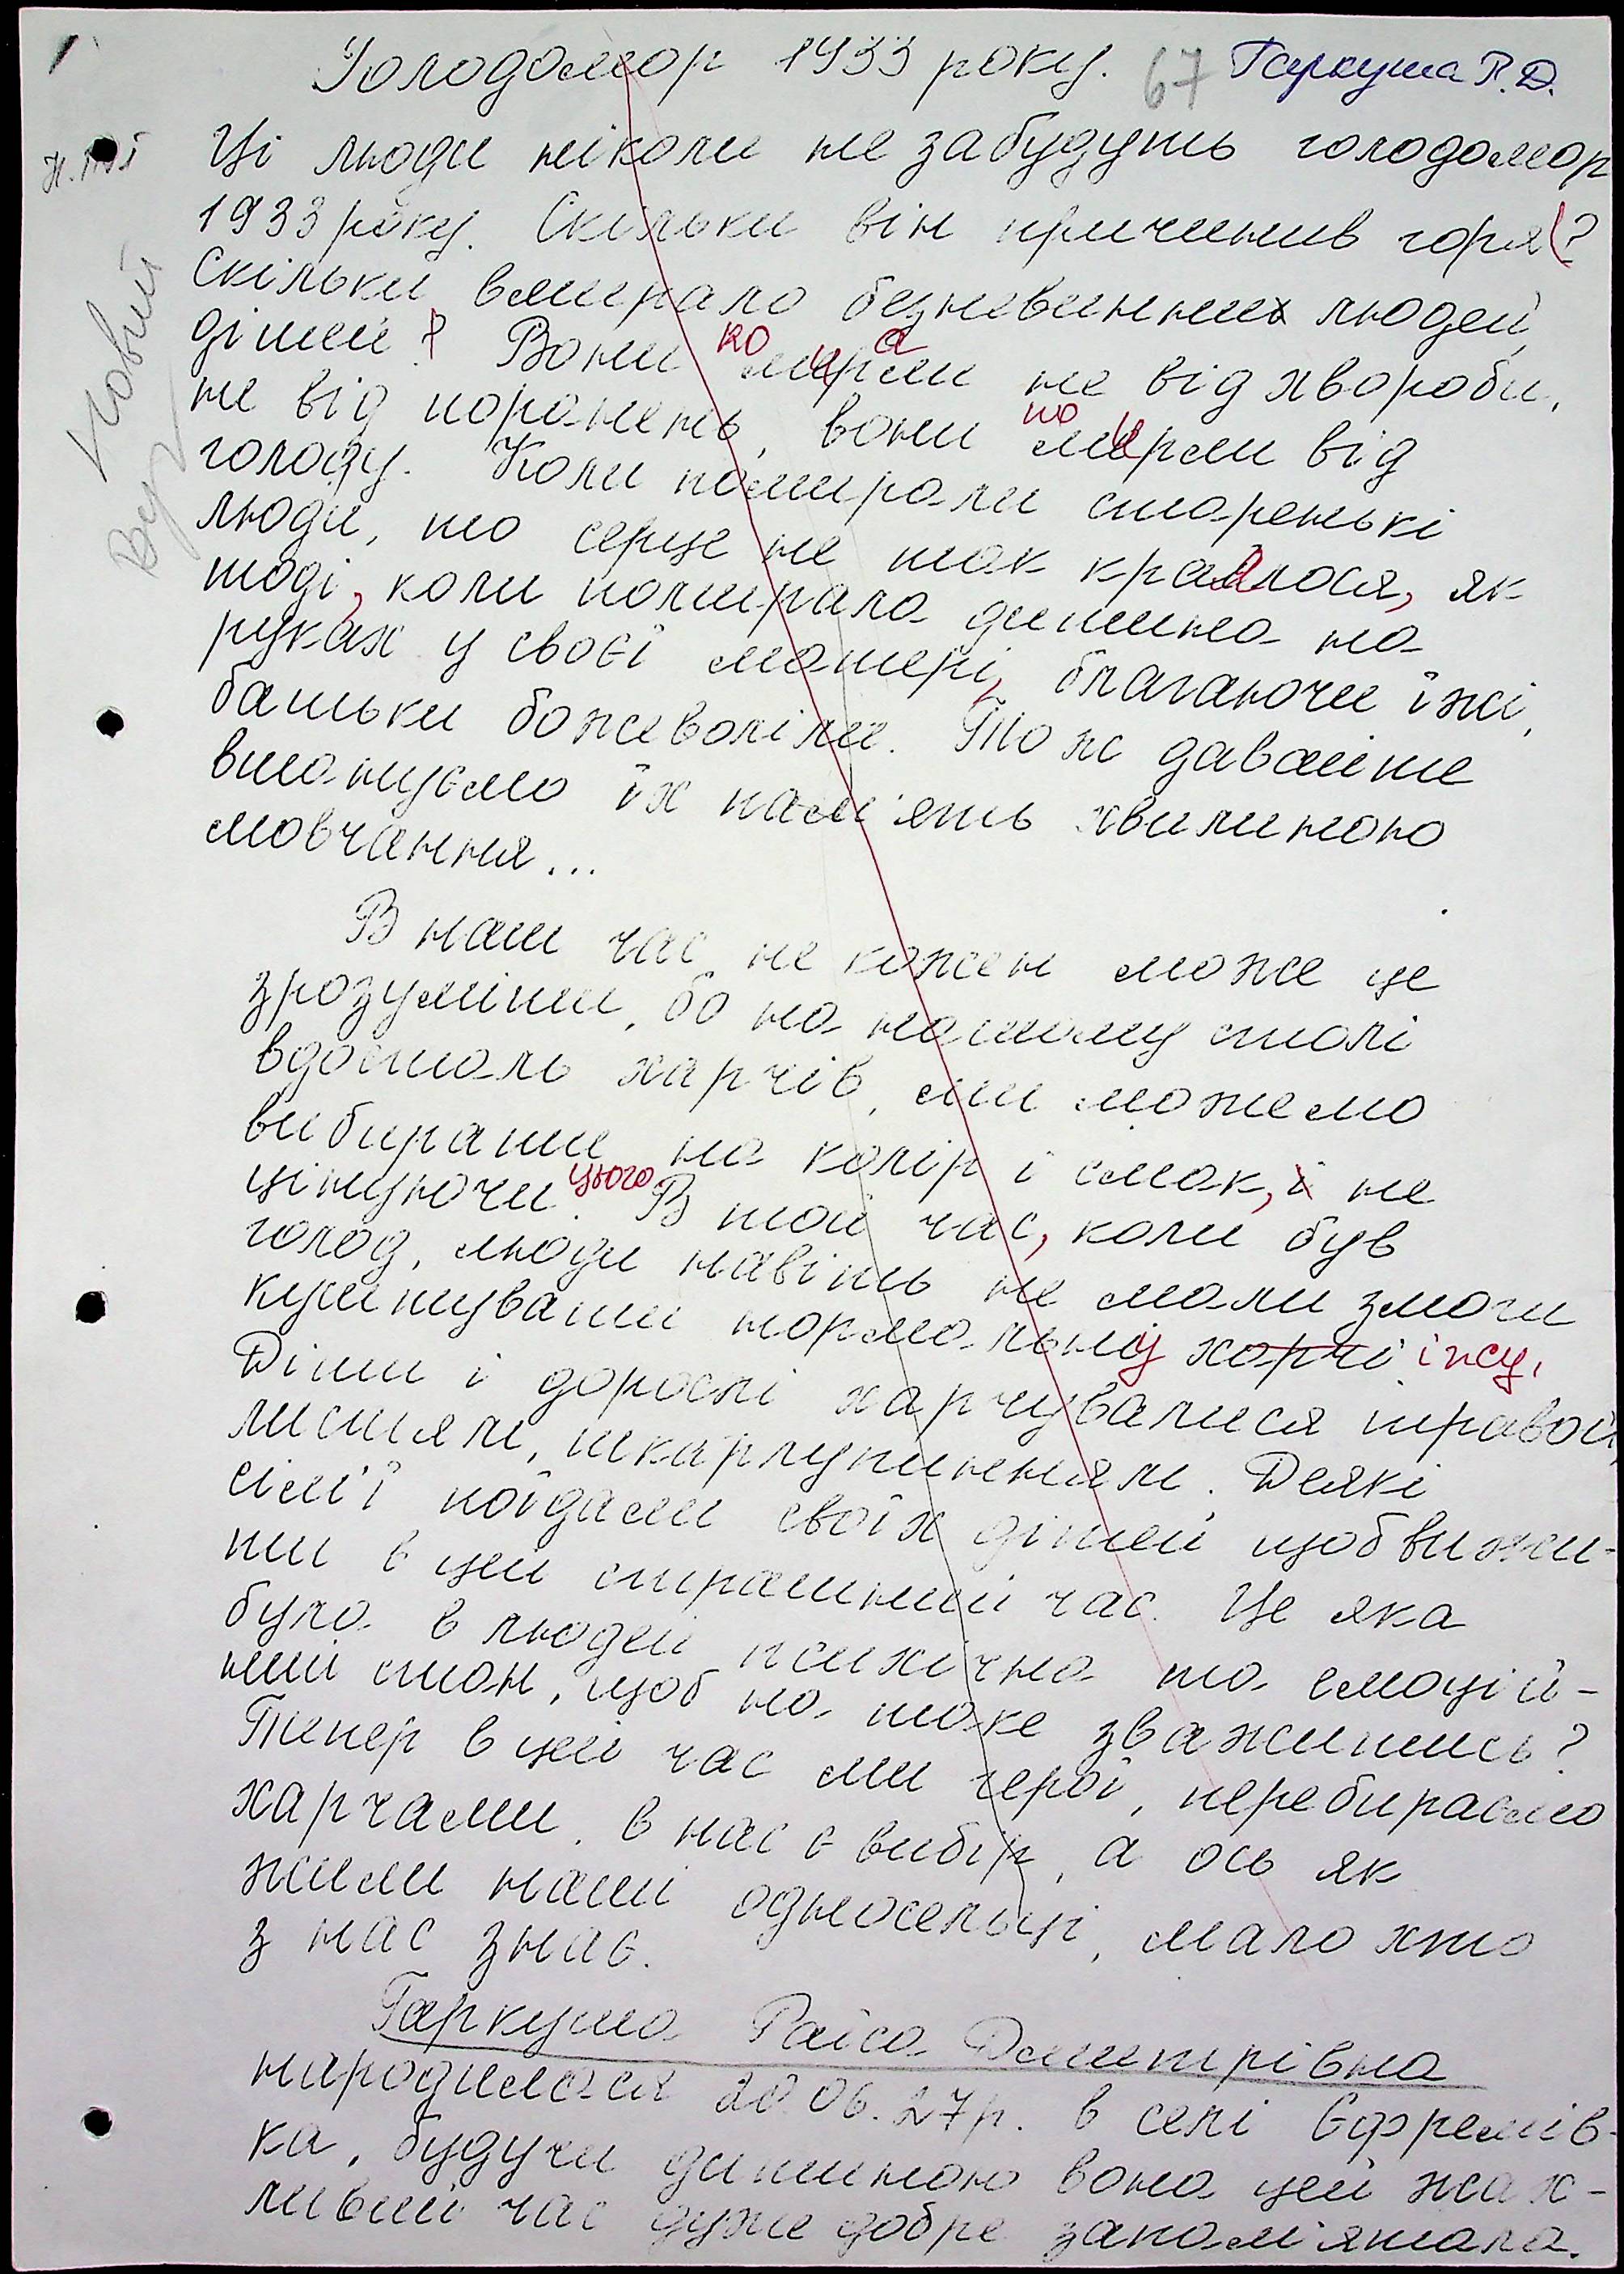 Голодомор 1933 року. 67 Гаркуша Р.Д.
Ці люди ніколи не забудуть голодомор
1933 року. Скільки він причинив горя?
Скільки вмирало безневинних людей,
дітей? Вони мерли не від хвороби,
не від поранень, вони мерли від
голоду. Коли помирали старенькі
люди, то серце не так краялося, як
тоді, коли помирала дитина на
руках у своєї матері, благаючи їжі,
батьки божеволіли. Тож давайте
вшануємо їх пам'ять хвилиною
мовчання...
В наш час не кожен може це
зрозуміти, бо на нашому столі
вдосталь харчів, ми можемо
вибирати на колір і смак, і не
цінуючи цього. В той час, коли був
голод, люди навіть не мали змоги
куштувати нормальну харчі їжу.
Діти і дорослі харчувалися травою,
листям, шкарлупинням. Деякі
сім'ї поїдали своїх дітей щоб вижи-
ти в цей страшний час. Це яка
була в людей психічна та емоцій-
ний стан, щоб на таке зважитись?
Тепер в цей час ми герої, перебираємо
харчами, в нас є вибір, а ось як
жили наші односельці, мало хто
з нас знає.
Гаркуша Раїса Дмитрівна
народилася 20.06.27р. в селі Єфремів-
ка, будучи дитиною вона цей жах-
ливий час дуже добре запам'ятала.
Новий